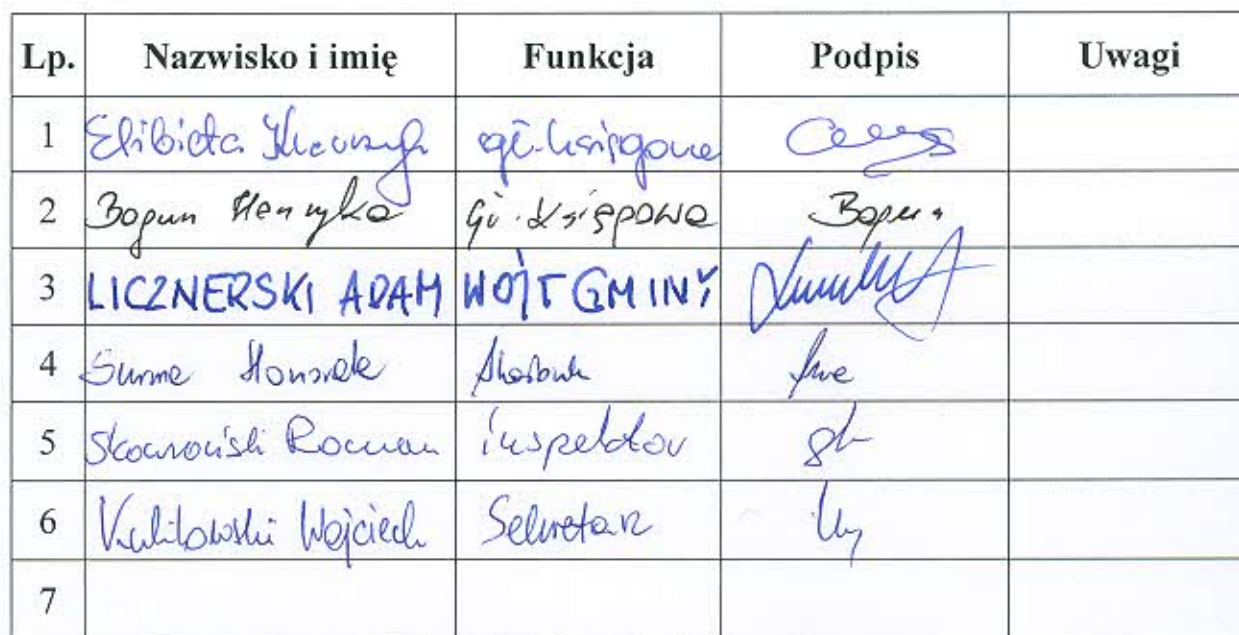 Lp. Nazwisko i imię Funkcja Podpis Uwagi
1 Elżbieta gł. księgowa
2 Bogun Henryka Gł. Księgowa Bogun
3 LICZNERSKI ADAM WÓJT GMINY
4 Surma Honorata Skarbnik
5 Skowroński Roman inspektor
6 Kulikowski Wojciech Sekretarz
7